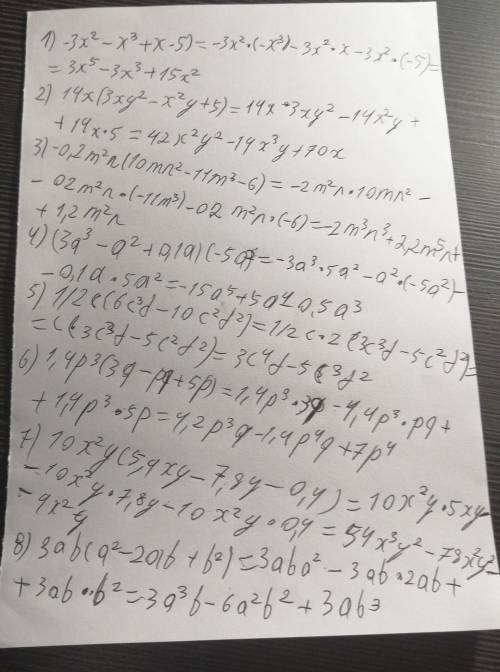 1) -3x² - x³ + x - 5) = -3x² · (-x³) - 3x² · x - 3x² · (-5) =
= 3x⁵ - 3x³ + 15x²
2) 14x(3xy² - x²y + 5) = 14x · 3xy² - 14x²y +
+ 14x · 5 = 42x²y² - 14x³y + 70x
3) -0,2m²n(10mn² - 11m³ - 6) = -2m²n · 10mn² -
- 02m²n · (-11m³) - 02 m²n · (-6) = -2m³n³ + 2,2m⁵n +
+ 1,2m²n
4) (3a³ - a² + 0,1a)(-5a²) = -3a³ · 5a² - a² · (-5a²) -
- 0,1a · 5a² = -15a⁵ + 5a⁴ - 0,5a³
5) 1/2c(6c³d - 10c²d²) = 1/2c · 2(3c³d - 5c²d²) =
= c(3c³d - 5c²d²) = 3c⁴d - 5c³d²
6) 1,4p³(3q - pq + 5p) = 1,4p³ · 3q - 1,4p³ · pq +
+ 1,4p³ · 5p = 4,2p³q - 1,4p⁴q + 7p⁴
7) 10x²y(5,4xy - 7,8y - 0,4) = 10x²y · 5xy
- 10x²y · 7,8y - 10x²y · 0,4 = 54x³y² - 78x²y²
- 4x²y
8) 3ab(a² - 2ab + b²) = 3aba² - 3ab · 2ab +
+ 3ab · b² = 3a³b - 6a²b² + 3ab³